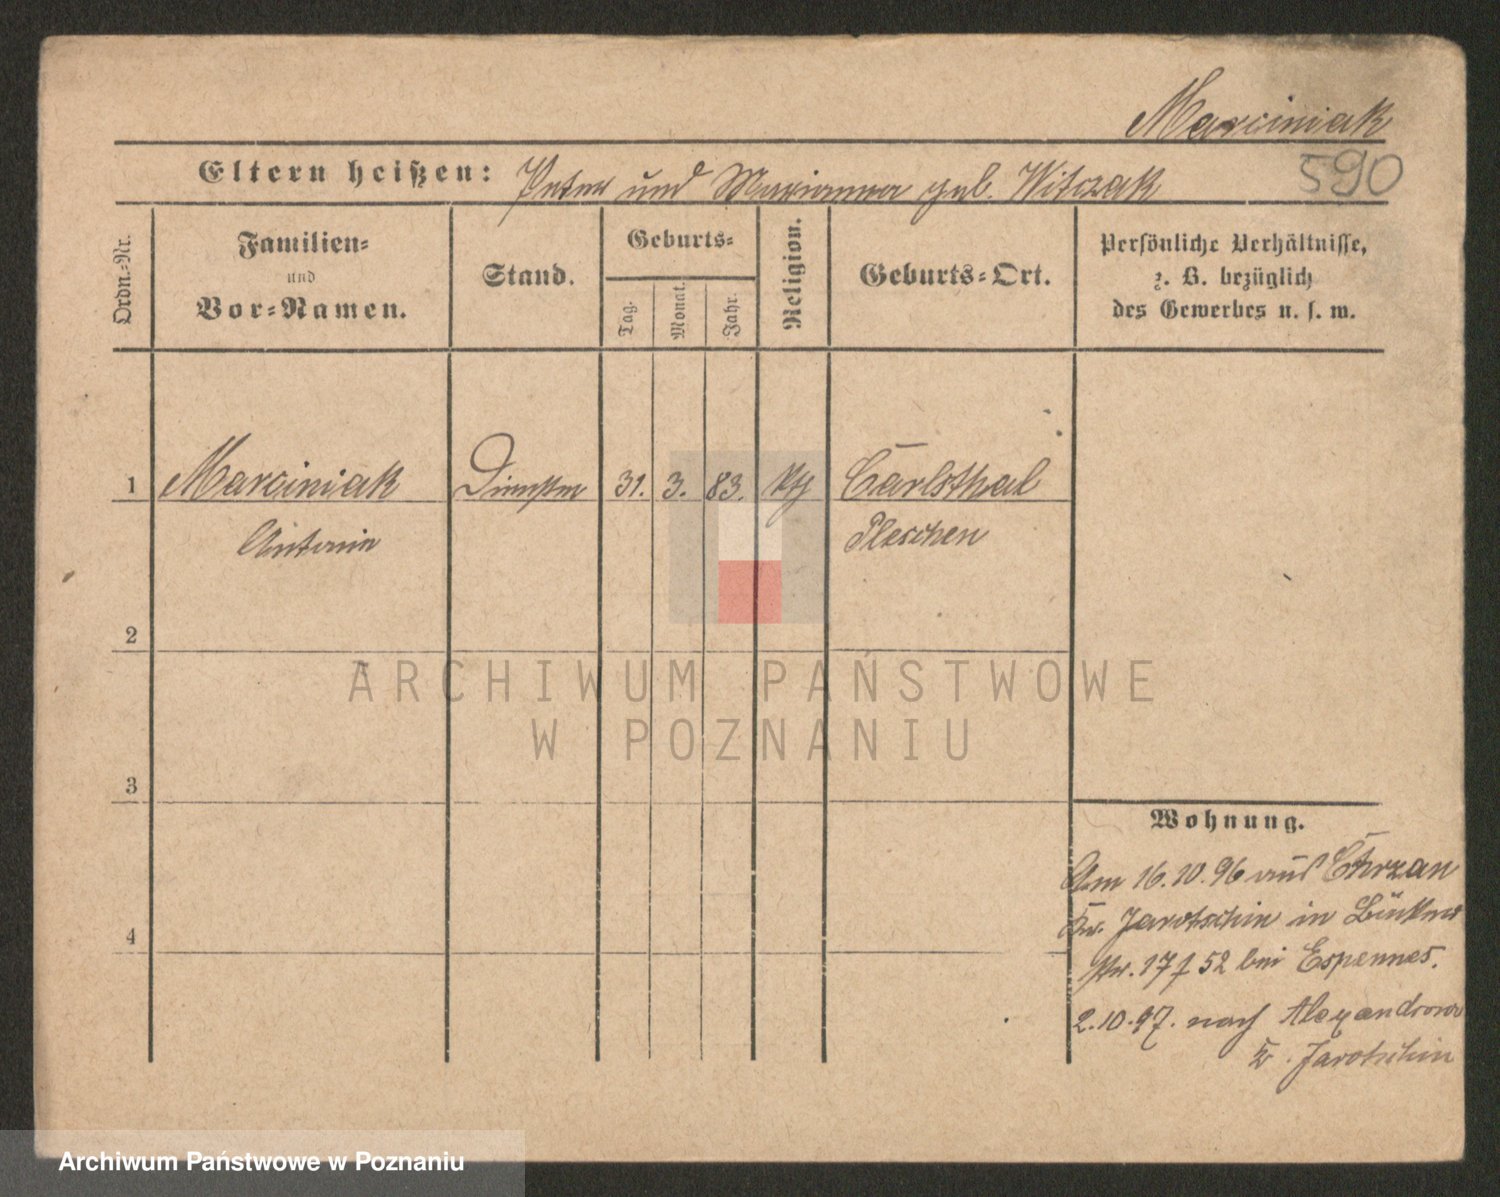 Marciniak
590
Eltern heißen: Peter und Marianna geb. Witczak
Ordn.-Nr.
Familien-
und
Vor-Namen.
Stand.
Geburts-
Tag.
Monat.
Jahr.
Religion.
Geburts-Ort.
Persönliche Verhältnisse,
z. B. bezüglich
des Gewerbes u. s. w.
1 Marciniak 31. 3. 83. Carlsthal
Antonin Pleschen
2
ARCHIWUM PAŃSTWOWE
W POZNANIU
3
Wohnung.
Am 16.10.96 aus Chrzan
Kr. Jarotschin in
4
17 f 52 bei Espennes.
2.10.97. nach Alexandrow
Jarotschin
Archiwum Państwowe w Poznaniu